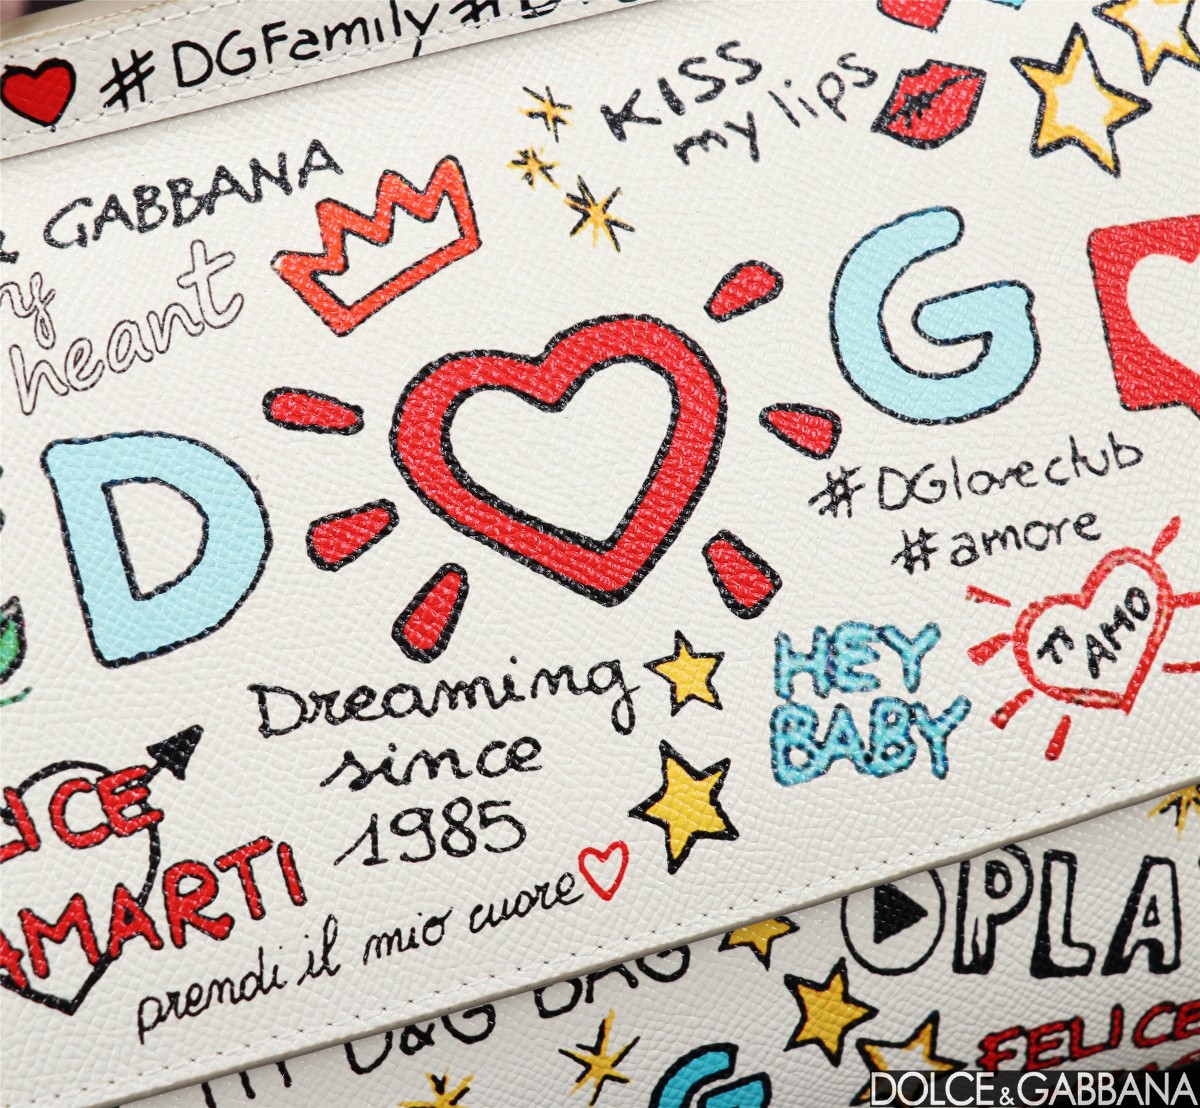 #DGFamily
KISS
my lips
& GABBANA
heart
D G
#DGloveclub
#amore
TI
AMO
HEY
BABY
Dreaming
since
1985
prendi il mio cuore
AMARTI
PLA
D&G BAG
FELICE
DOLCE&GABBANA